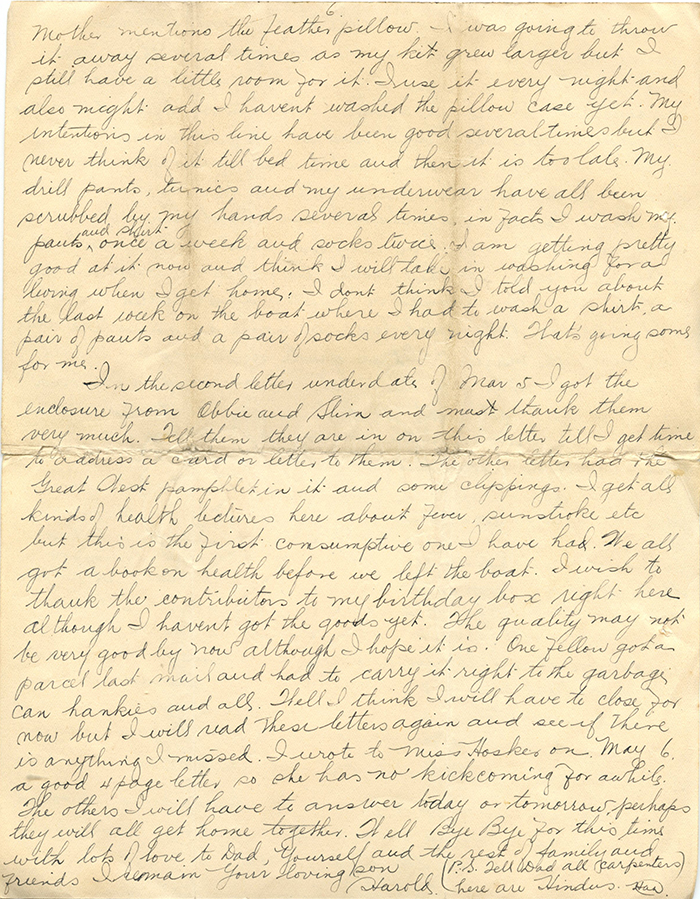 6
Mother mentions the feather pillow. I was going to throw
it away several times as my kit grew larger but I
still have a little room for it. I use it every night and
also might add I havent washed the pillow case yet. My
intentions in this line have been good several times but I
never think of it till bed time and then it is too late. My
drill pants, tunics and my underwear have all been
scrubbed by my hands several times, in facts I wash my
and shirt
pants ^ once a week and socks twice. I am getting pretty
good at it now and think I will take in washing for a
living when I get home. I dont think I told you about
the last week on the boat where I had to wash a shirt, a
pair of pants and a pair of socks every night. That's going some
for me.
In the second letter under date of Mar 5 - I got the
enclosure from Obbie and Slim and must thank them
very much. Tell them they are in on this letter till I get time
to address a card or letter to them. The other letter had the
Great West pamphlet in it and some clippings. I get all
kinds of health lectures here about fever, sunstroke etc
but this is the first consumptive one I have had. We all
got a book on health before we left the boat. I wish to
thank the contributors to my birthday box right here
although I havent got the goods yet. The quality may not
be very good by now although I hope it is. One fellow got a
parcel last mail and had to carry it right to the garbage
can hankies and all. Well I think I will have to close for
now but I will read these letters again and see if there
is anything I missed. I wrote to Miss Hosker on May 6.
a good 4 page letter so she has no kick coming for awhile.
The others I will have to answer today or tomorrow, perhaps
they will all get home together. Well Bye Bye for this time
with lots of love to Dad, Yourself and the rest of family and
friends I remain Your loving son
Harold.
(P.S. Tell Dad all (carpenters)
here are Hindus.